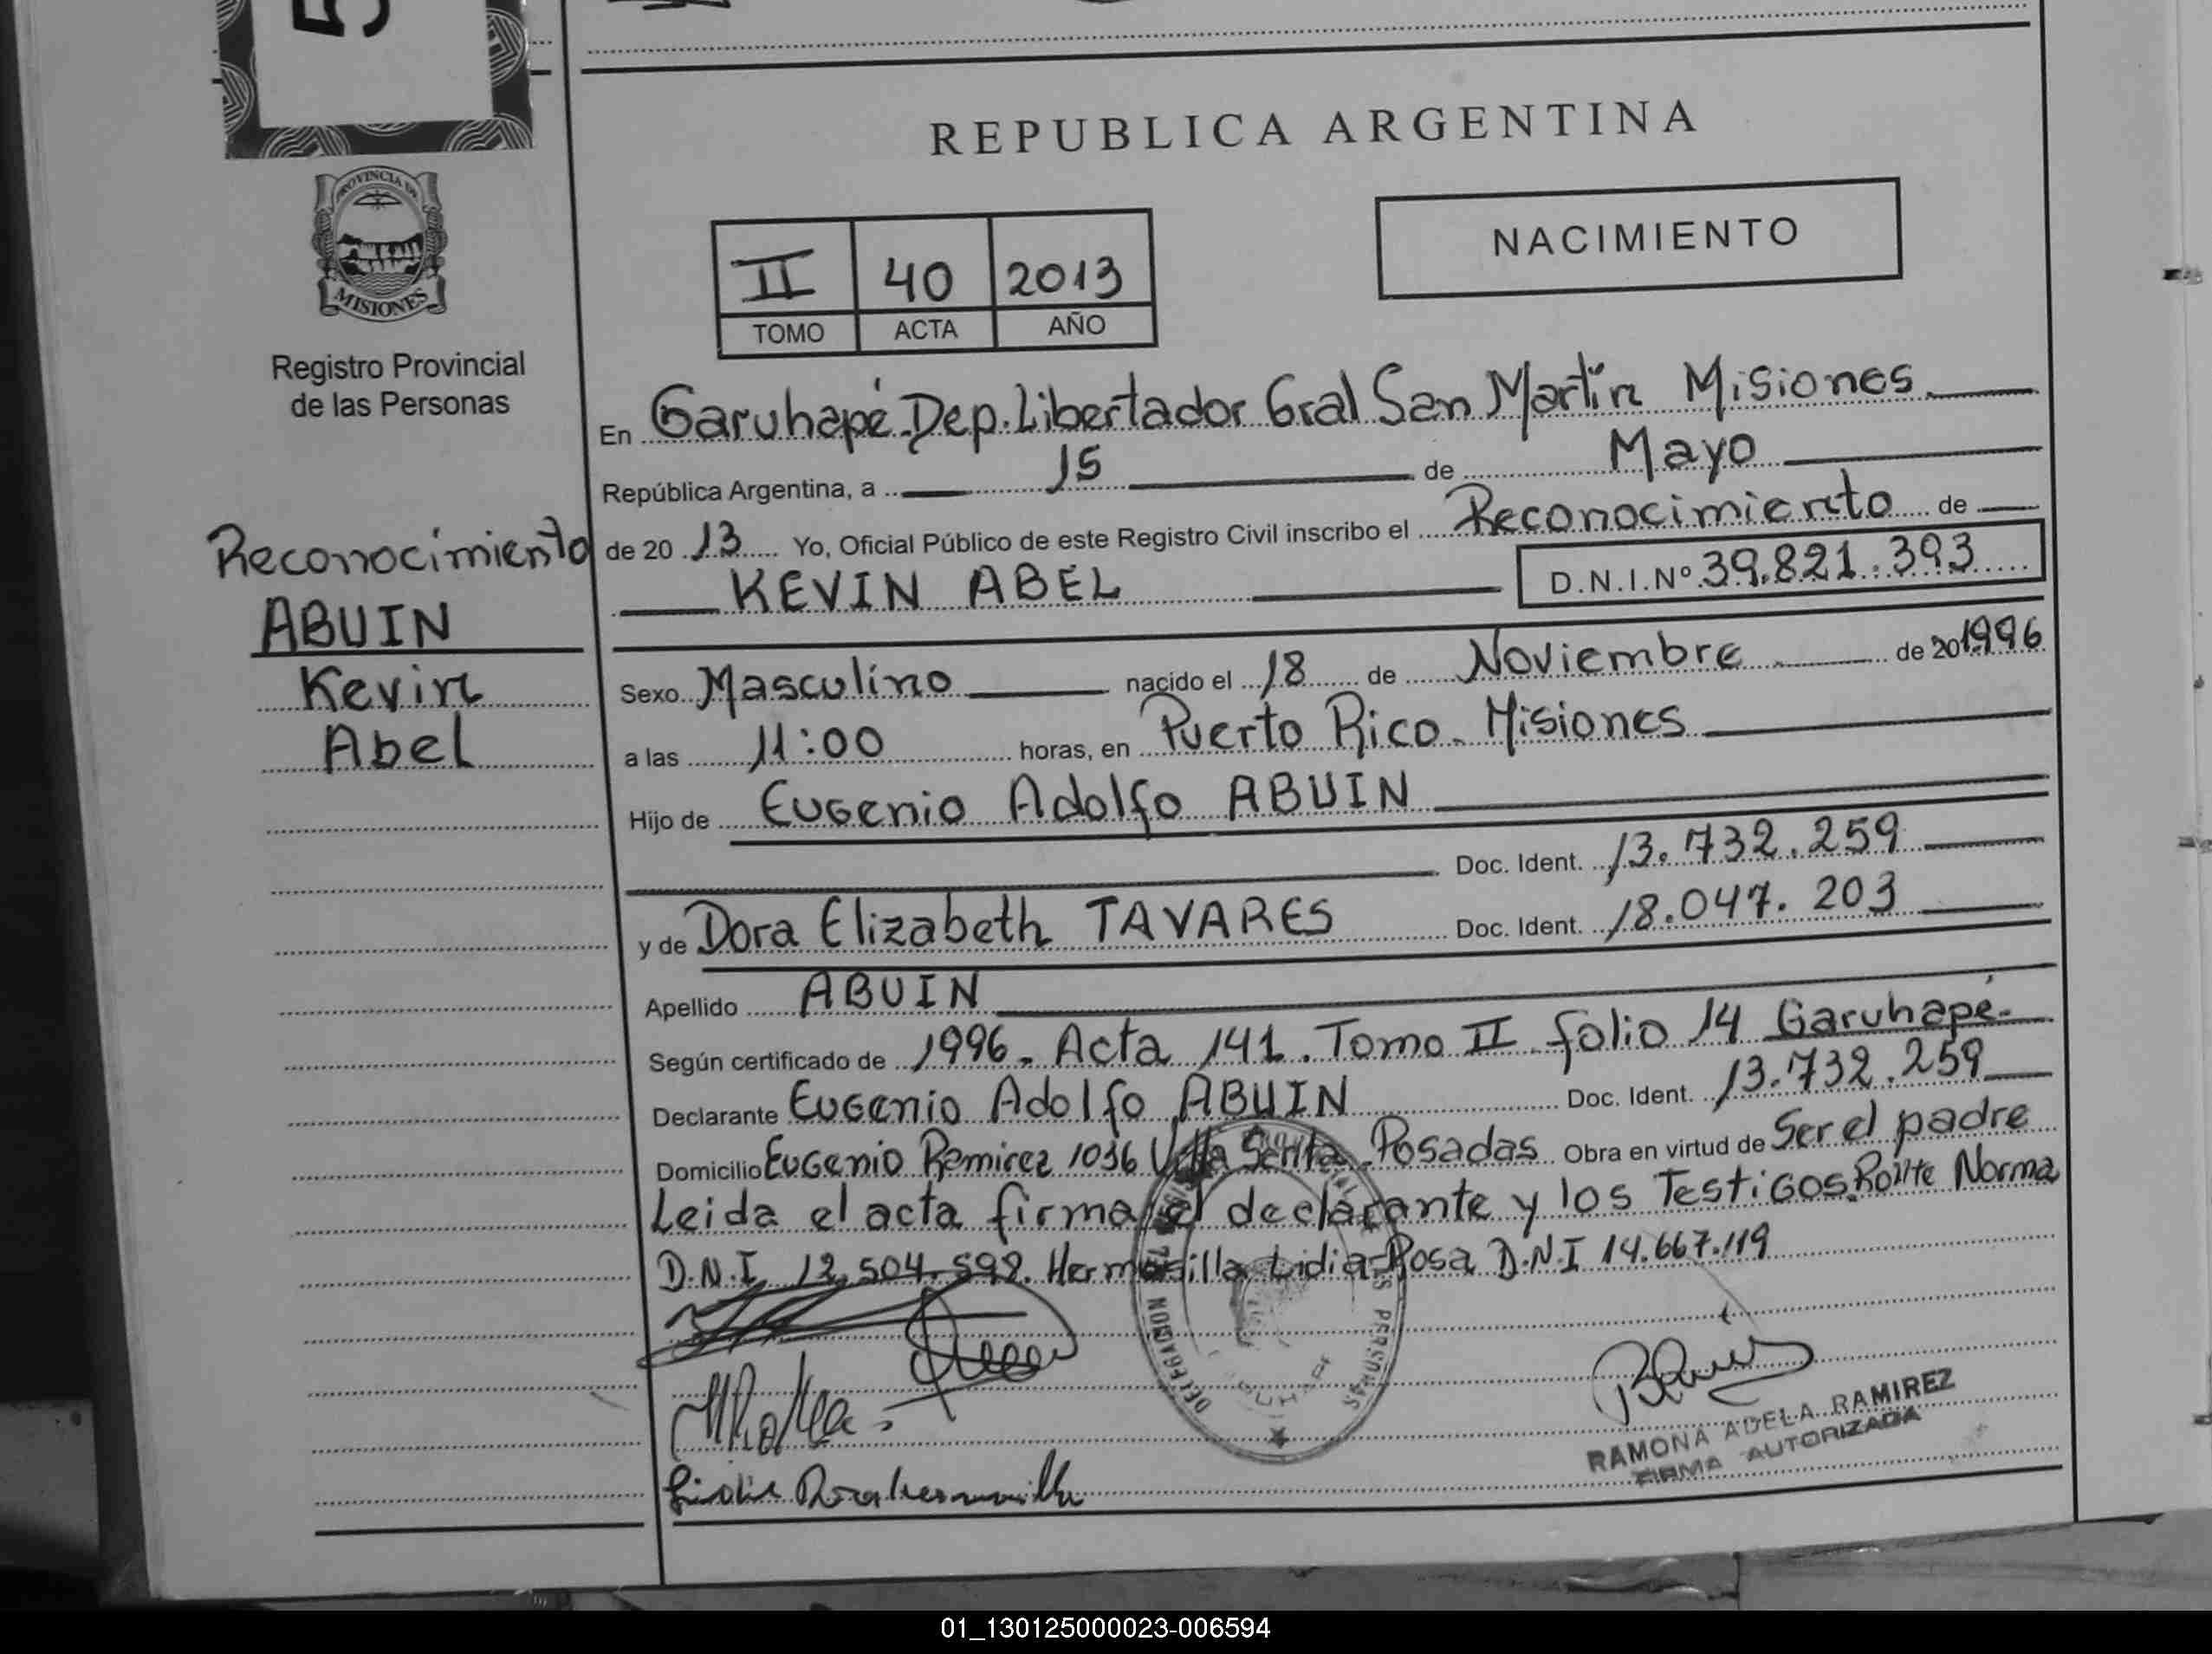 5
PROVINCIA DE
MISIONES
Registro Provincial
de las Personas
Reconocimiento
ABUIN
Kevin
Abel
REPUBLICA ARGENTINA
NACIMIENTO
II 40 2013
TOMO ACTA AÑO
En Garuhapé-Dep. Libertador Gral San Martín Misiones
República Argentina, a 15 de Mayo
de 20 13 Yo, Oficial Público de este Registro Civil inscribo el Reconocimiento de
KEVIN ABEL D.N.I. Nº 39.821.393
Sexo Masculino nacido el 18 de Noviembre de 20 1996
a las 11:00 horas, en Puerto Rico - Misiones
Hijo de Eugenio Adolfo ABUIN
Doc. Ident. 13.732.259
y de Dora Elizabeth TAVARES Doc. Ident. 18.047.203
Apellido ABUIN
Según certificado de 1996 - Acta 141. Tomo II folio 14 Garuhapé-
Declarante Eugenio Adolfo ABUIN Doc. Ident. 13.732.259
Domicilio Eugenio Ramirez 1036 Villa Sarita - Posadas Obra en virtud de Ser el padre
Leida el acta firma el declarante y los Testigos Norma
D.N.I 12.504.592. Hermosilla Lidia Rosa D.N.I 14.667.119
DELEGACION
PERSONAS
RAMONA ADELA RAMIREZ
FIRMA AUTORIZADA
01_130125000023-006594